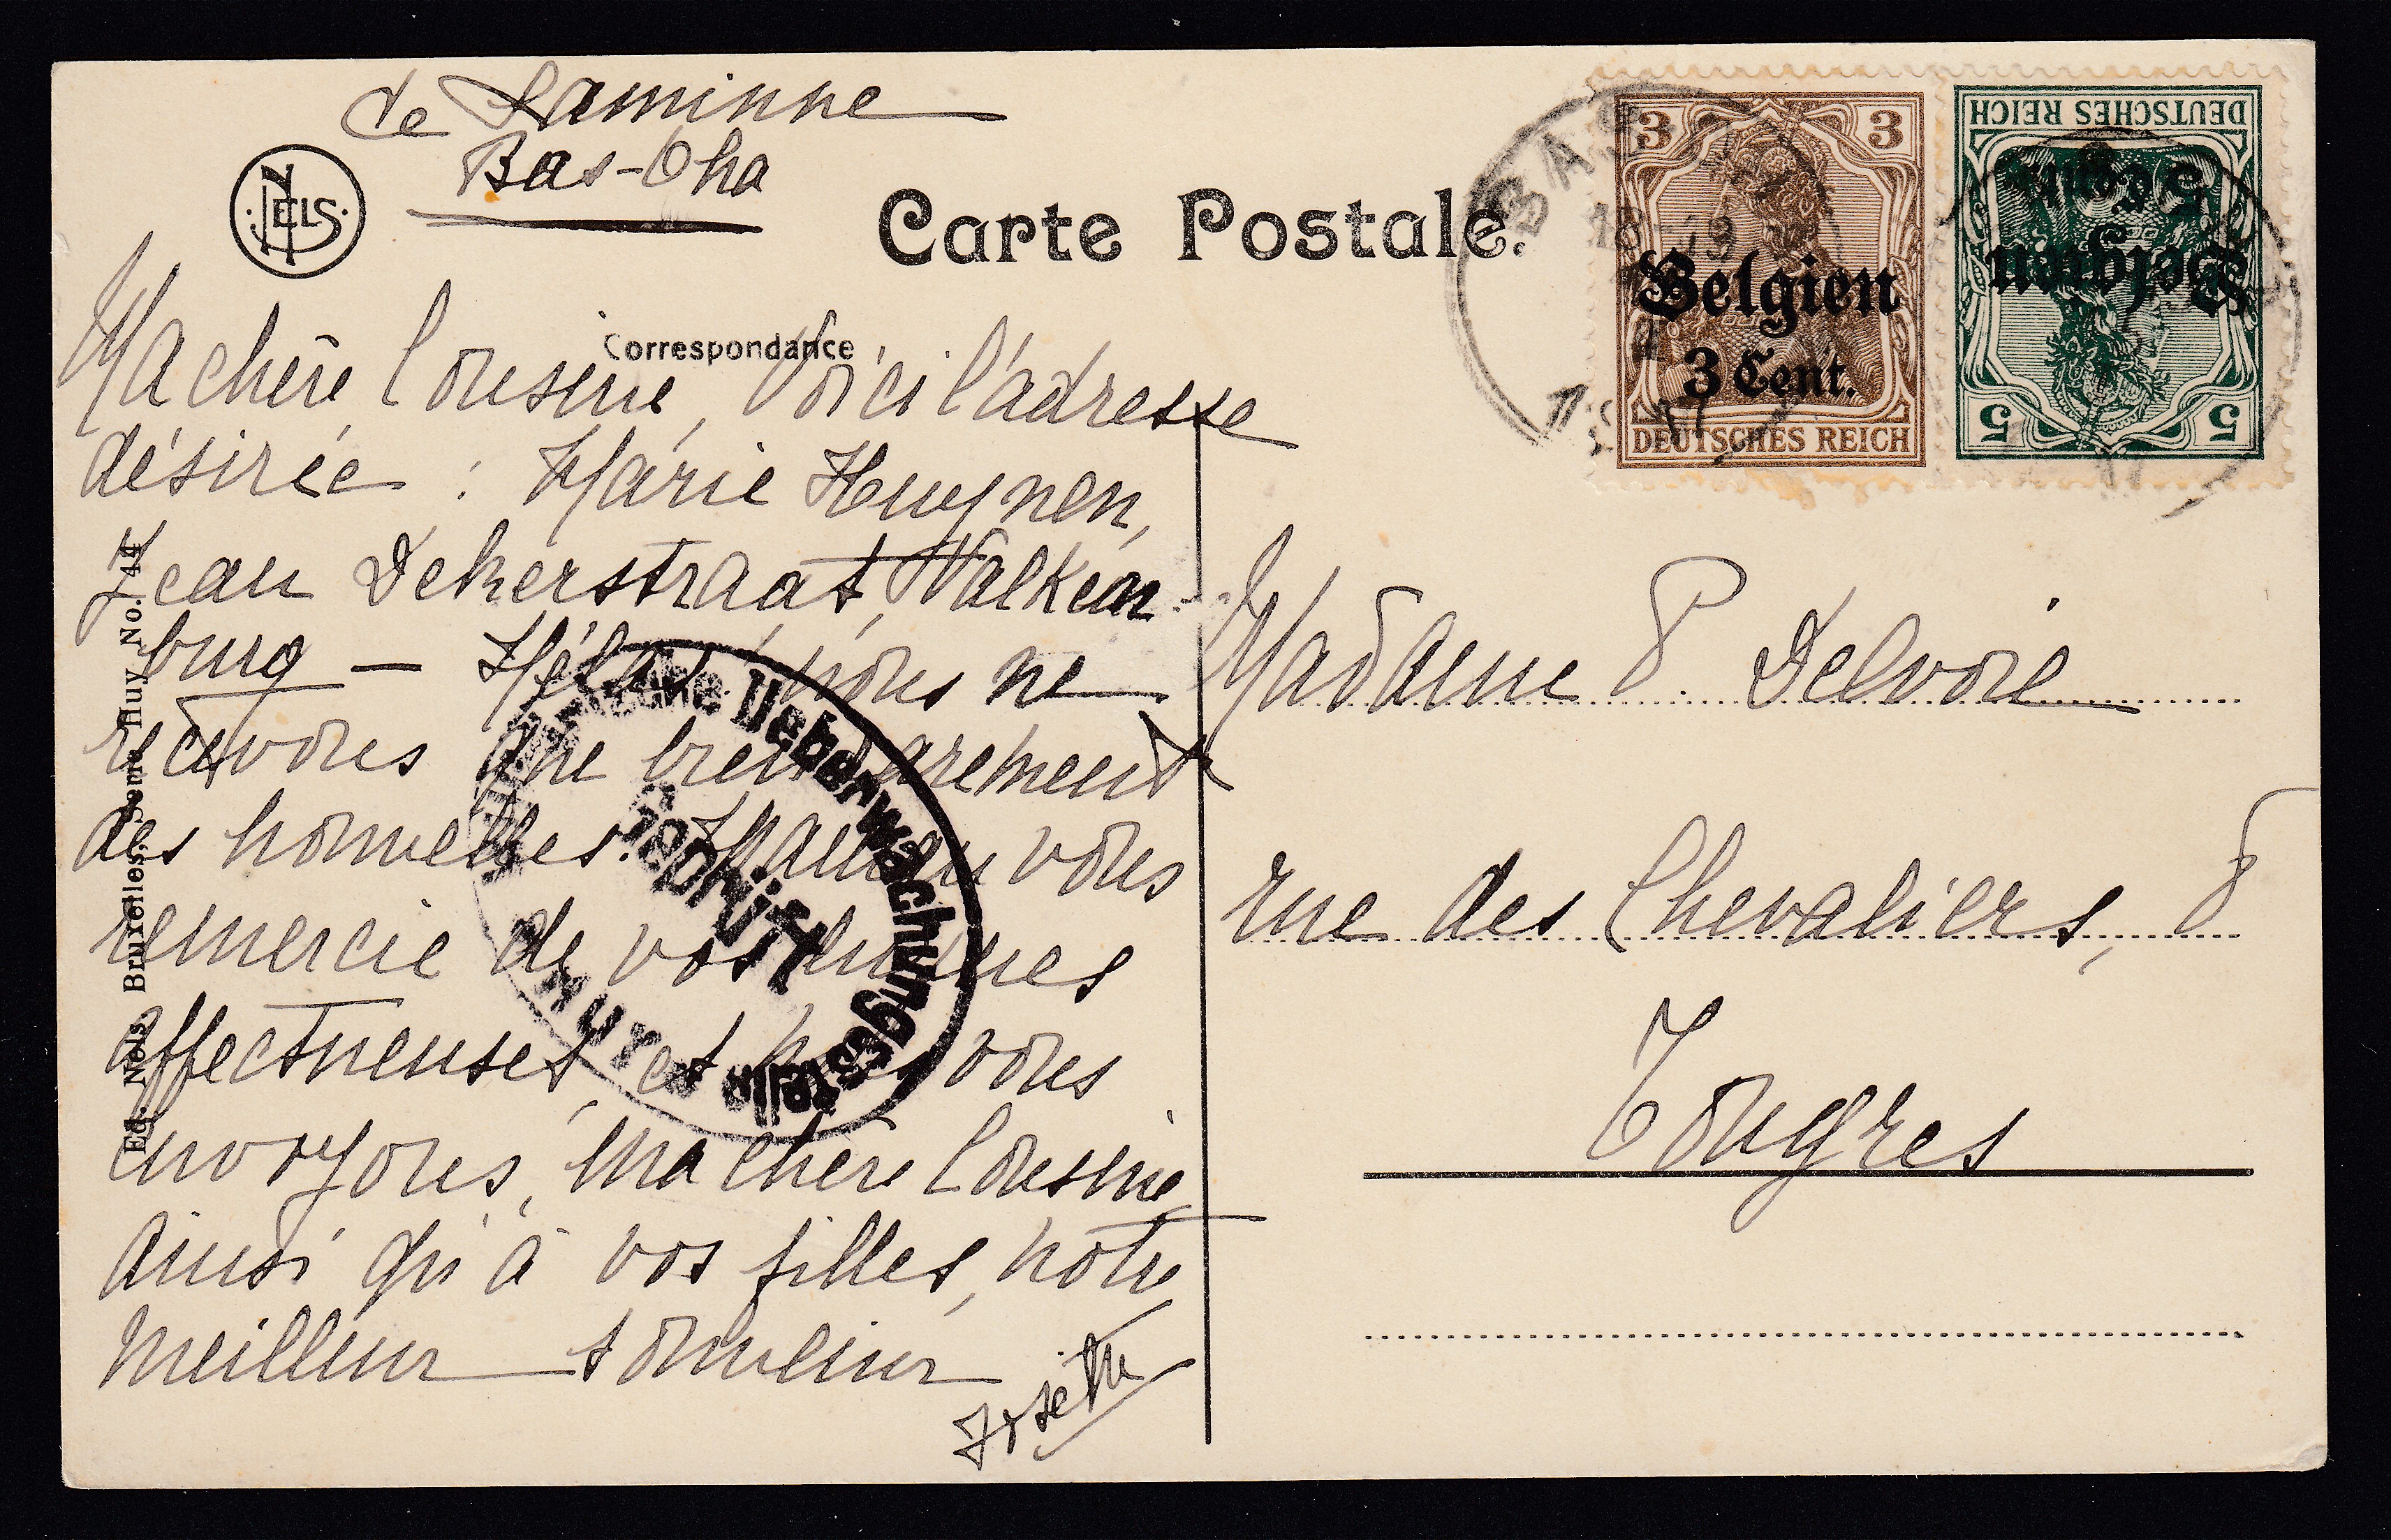 de Laminne
Bas-Oha
NELS
Carte Postale.
Correspondance
Ma chère Cousine, Voici l'adresse
désirée : Marie Huynen,
Jean Dekerstraat, Walken
burg — Hélas! nous ne
recevons que bien rarement
des nouvelles. Maman vous
remercie de vos lignes
affectueuses, et nous vous
envoyons, ma chère Cousine,
ainsi qu'à vos filles, notre
meilleur souvenir
Josette
Ed. Nels, Bruxelles, Serie Huy No. 44
Militärische Ueberwachungsstelle
Geprüft
HUY
BAS
17
3 3
Belgien
3 Cent.
DEUTSCHES REICH
DEUTSCHES REICH
Belgien
5 Cent.
5 5
Madame P. Delvoie
rue des Chevaliers, 8
Tongres